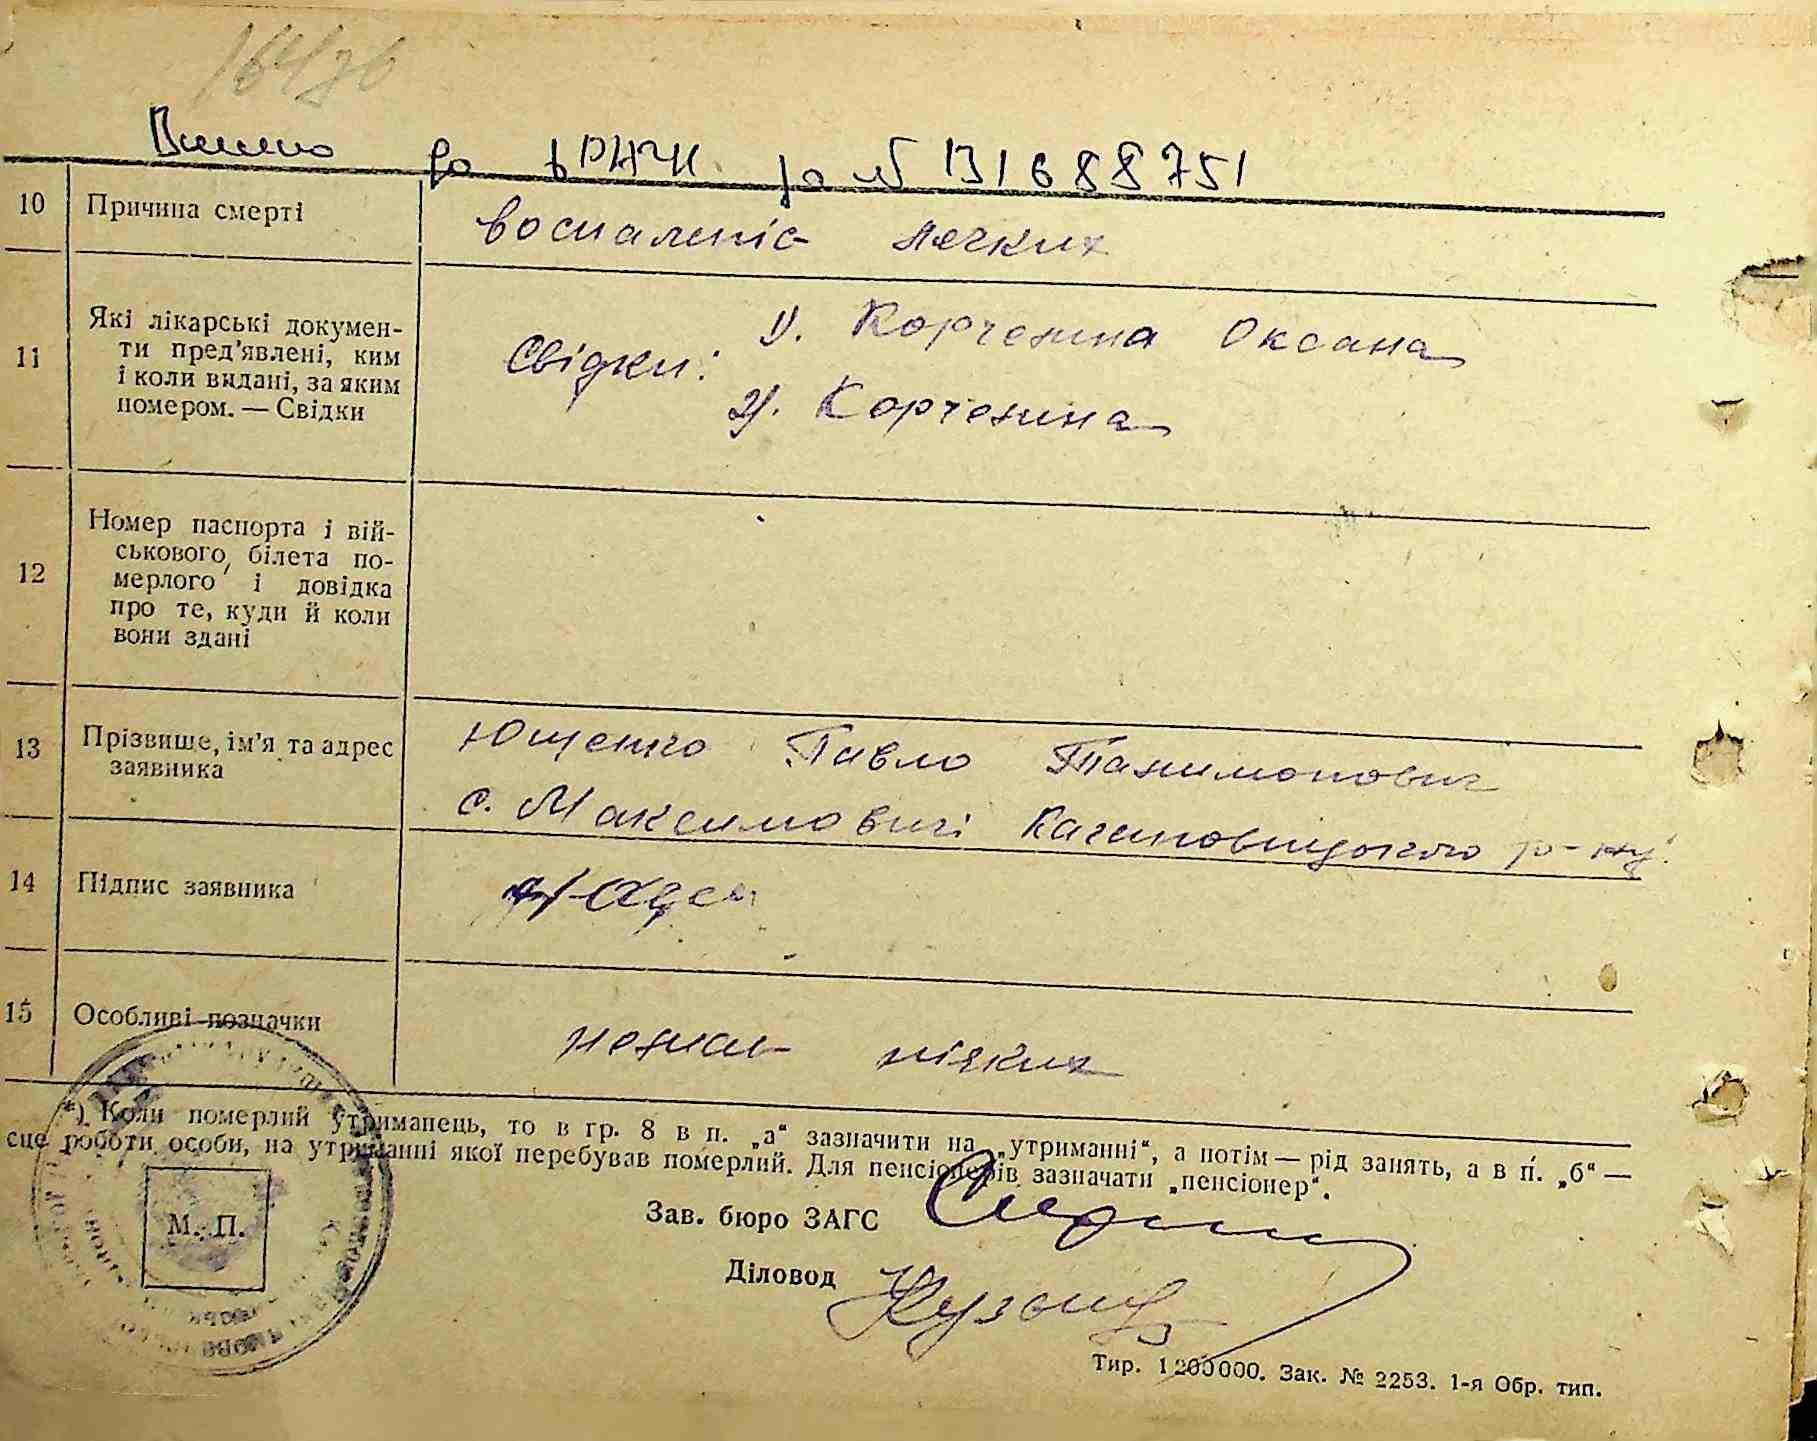 Внесено до ДРАЦС за № 131688751
10 Причина смерті
воспаленіє легких
11 Які лікарські докумен-
ти пред'явлені, ким
і коли видані, за яким
номером. — Свідки
Свідки: 1). Корченина Оксана
2). Корченина
12 Номер паспорта і вій-
ськового, білета по-
мерлого і довідка
про те, куди й коли
вони здані
13 Прізвище, ім'я та адрес
заявника
Ющенко Павло
с. Максимовичі Кагановицького р-ну
14 Підпис заявника
15 Особливі позначки
немає ніяких
*) Коли померлий утриманець, то в гр. 8 в п. „а“ зазначити на „утриманні“, а потім — рід занять, а в п. „б“ —
сце роботи особи, на утриманні якої перебував померлий. Для пенсіонерів зазначати „пенсіонер“.
М. П.
Зав. бюро ЗАГС
Діловод
Тир. 1 200 000. Зак. № 2253. 1-я Обр. тип.